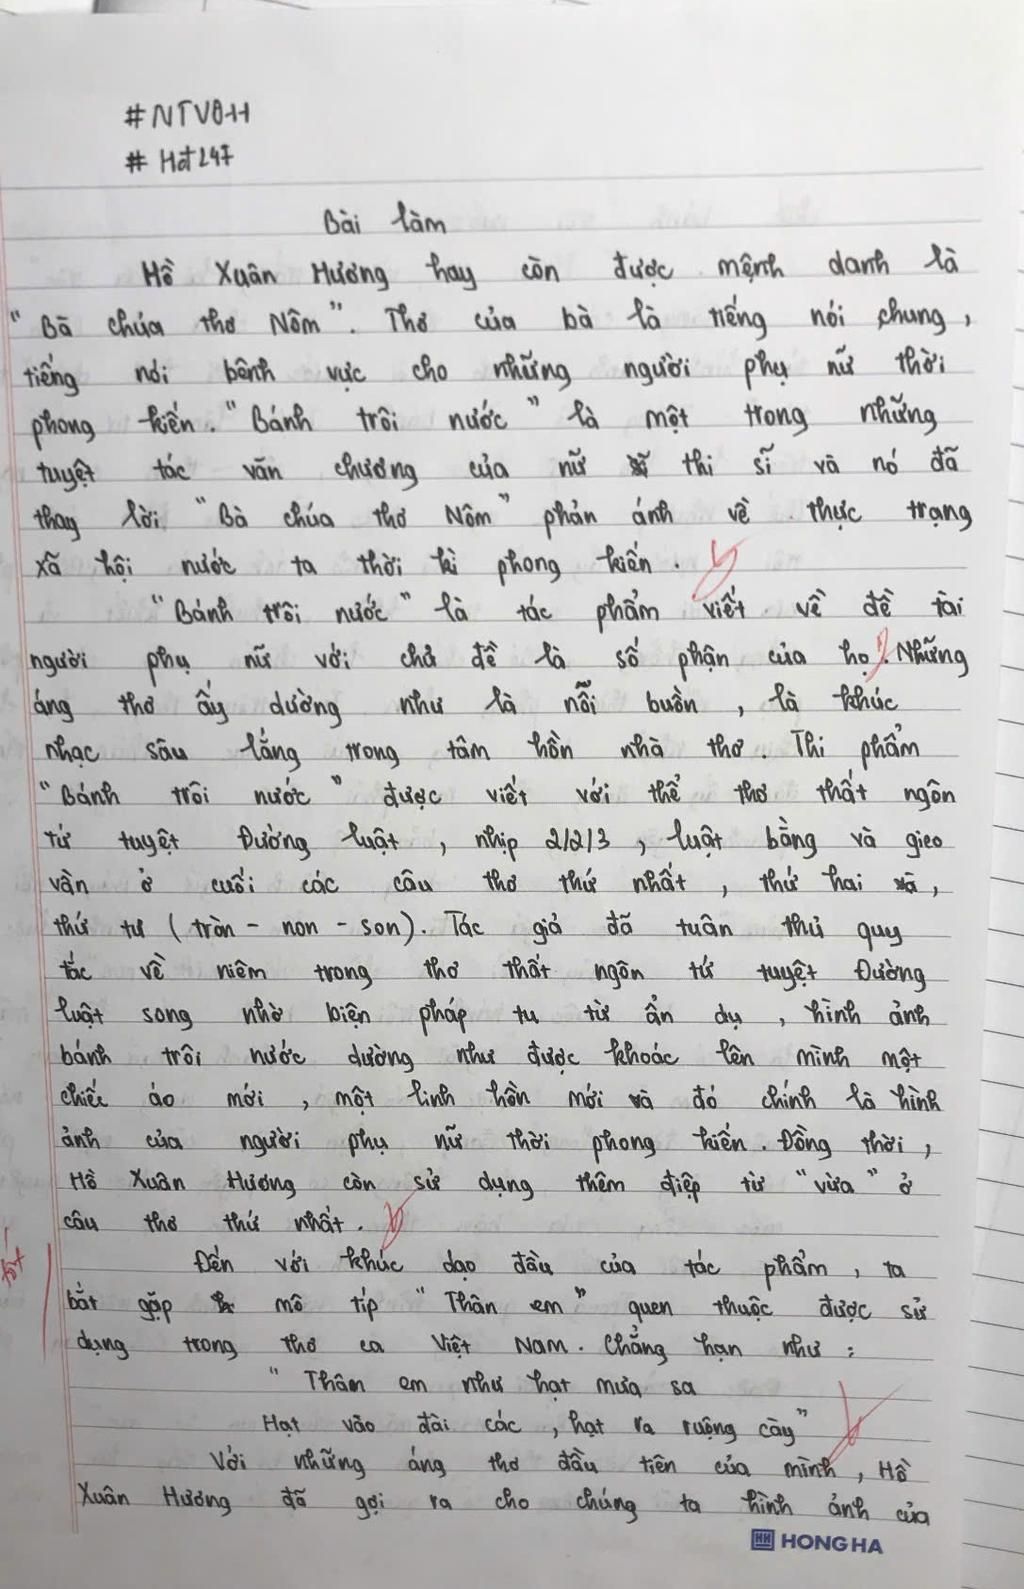 #NTV011
# Hot247
Bài làm
Hồ Xuân Hương hay còn được mệnh danh là
"Bà chúa thơ Nôm". Thơ của bà là tiếng nói chung,
tiếng nói bênh vực cho những người phụ nữ thời
phong kiến. "Bánh trôi nước" là một trong những
tuyệt tác văn chương của nữ thi sĩ và nó đã
thay lời "Bà chúa thơ Nôm" phản ánh về thực trạng
xã hội nước ta thời kì phong kiến.
"Bánh trôi nước" là tác phẩm viết về đề tài
người phụ nữ với chủ đề là số phận của họ. Những
áng thơ ấy dường như là nỗi buồn, là khúc
nhạc sâu lắng trong tâm hồn nhà thơ. Thi phẩm
"Bánh trôi nước" được viết với thể thơ thất ngôn
tứ tuyệt Đường luật, nhịp 2/2/3, luật bằng và gieo
vần ở cuối các câu thơ thứ nhất, thứ hai,
thứ tư (tròn - non - son). Tác giả đã tuân thủ quy
tắc về niêm trong thơ thất ngôn tứ tuyệt Đường
luật song nhờ biện pháp tu từ ẩn dụ, hình ảnh
bánh trôi nước dường như được khoác lên mình một
chiếc áo mới, một linh hồn mới và đó chính là hình
ảnh của người phụ nữ thời phong kiến. Đồng thời,
Hồ Xuân Hương còn sử dụng thêm điệp từ "vừa" ở
câu thơ thứ nhất.
Đến với khúc dạo đầu của tác phẩm, ta
bắt gặp mô típ "Thân em" quen thuộc được sử
dụng trong thơ ca Việt Nam. Chẳng hạn như:
"Thân em như hạt mưa sa
Hạt vào đài các, hạt ra ruộng cày"
Với những áng thơ đầu tiên của mình, Hồ
Xuân Hương đã gợi ra cho chúng ta hình ảnh của
HH HONG HA